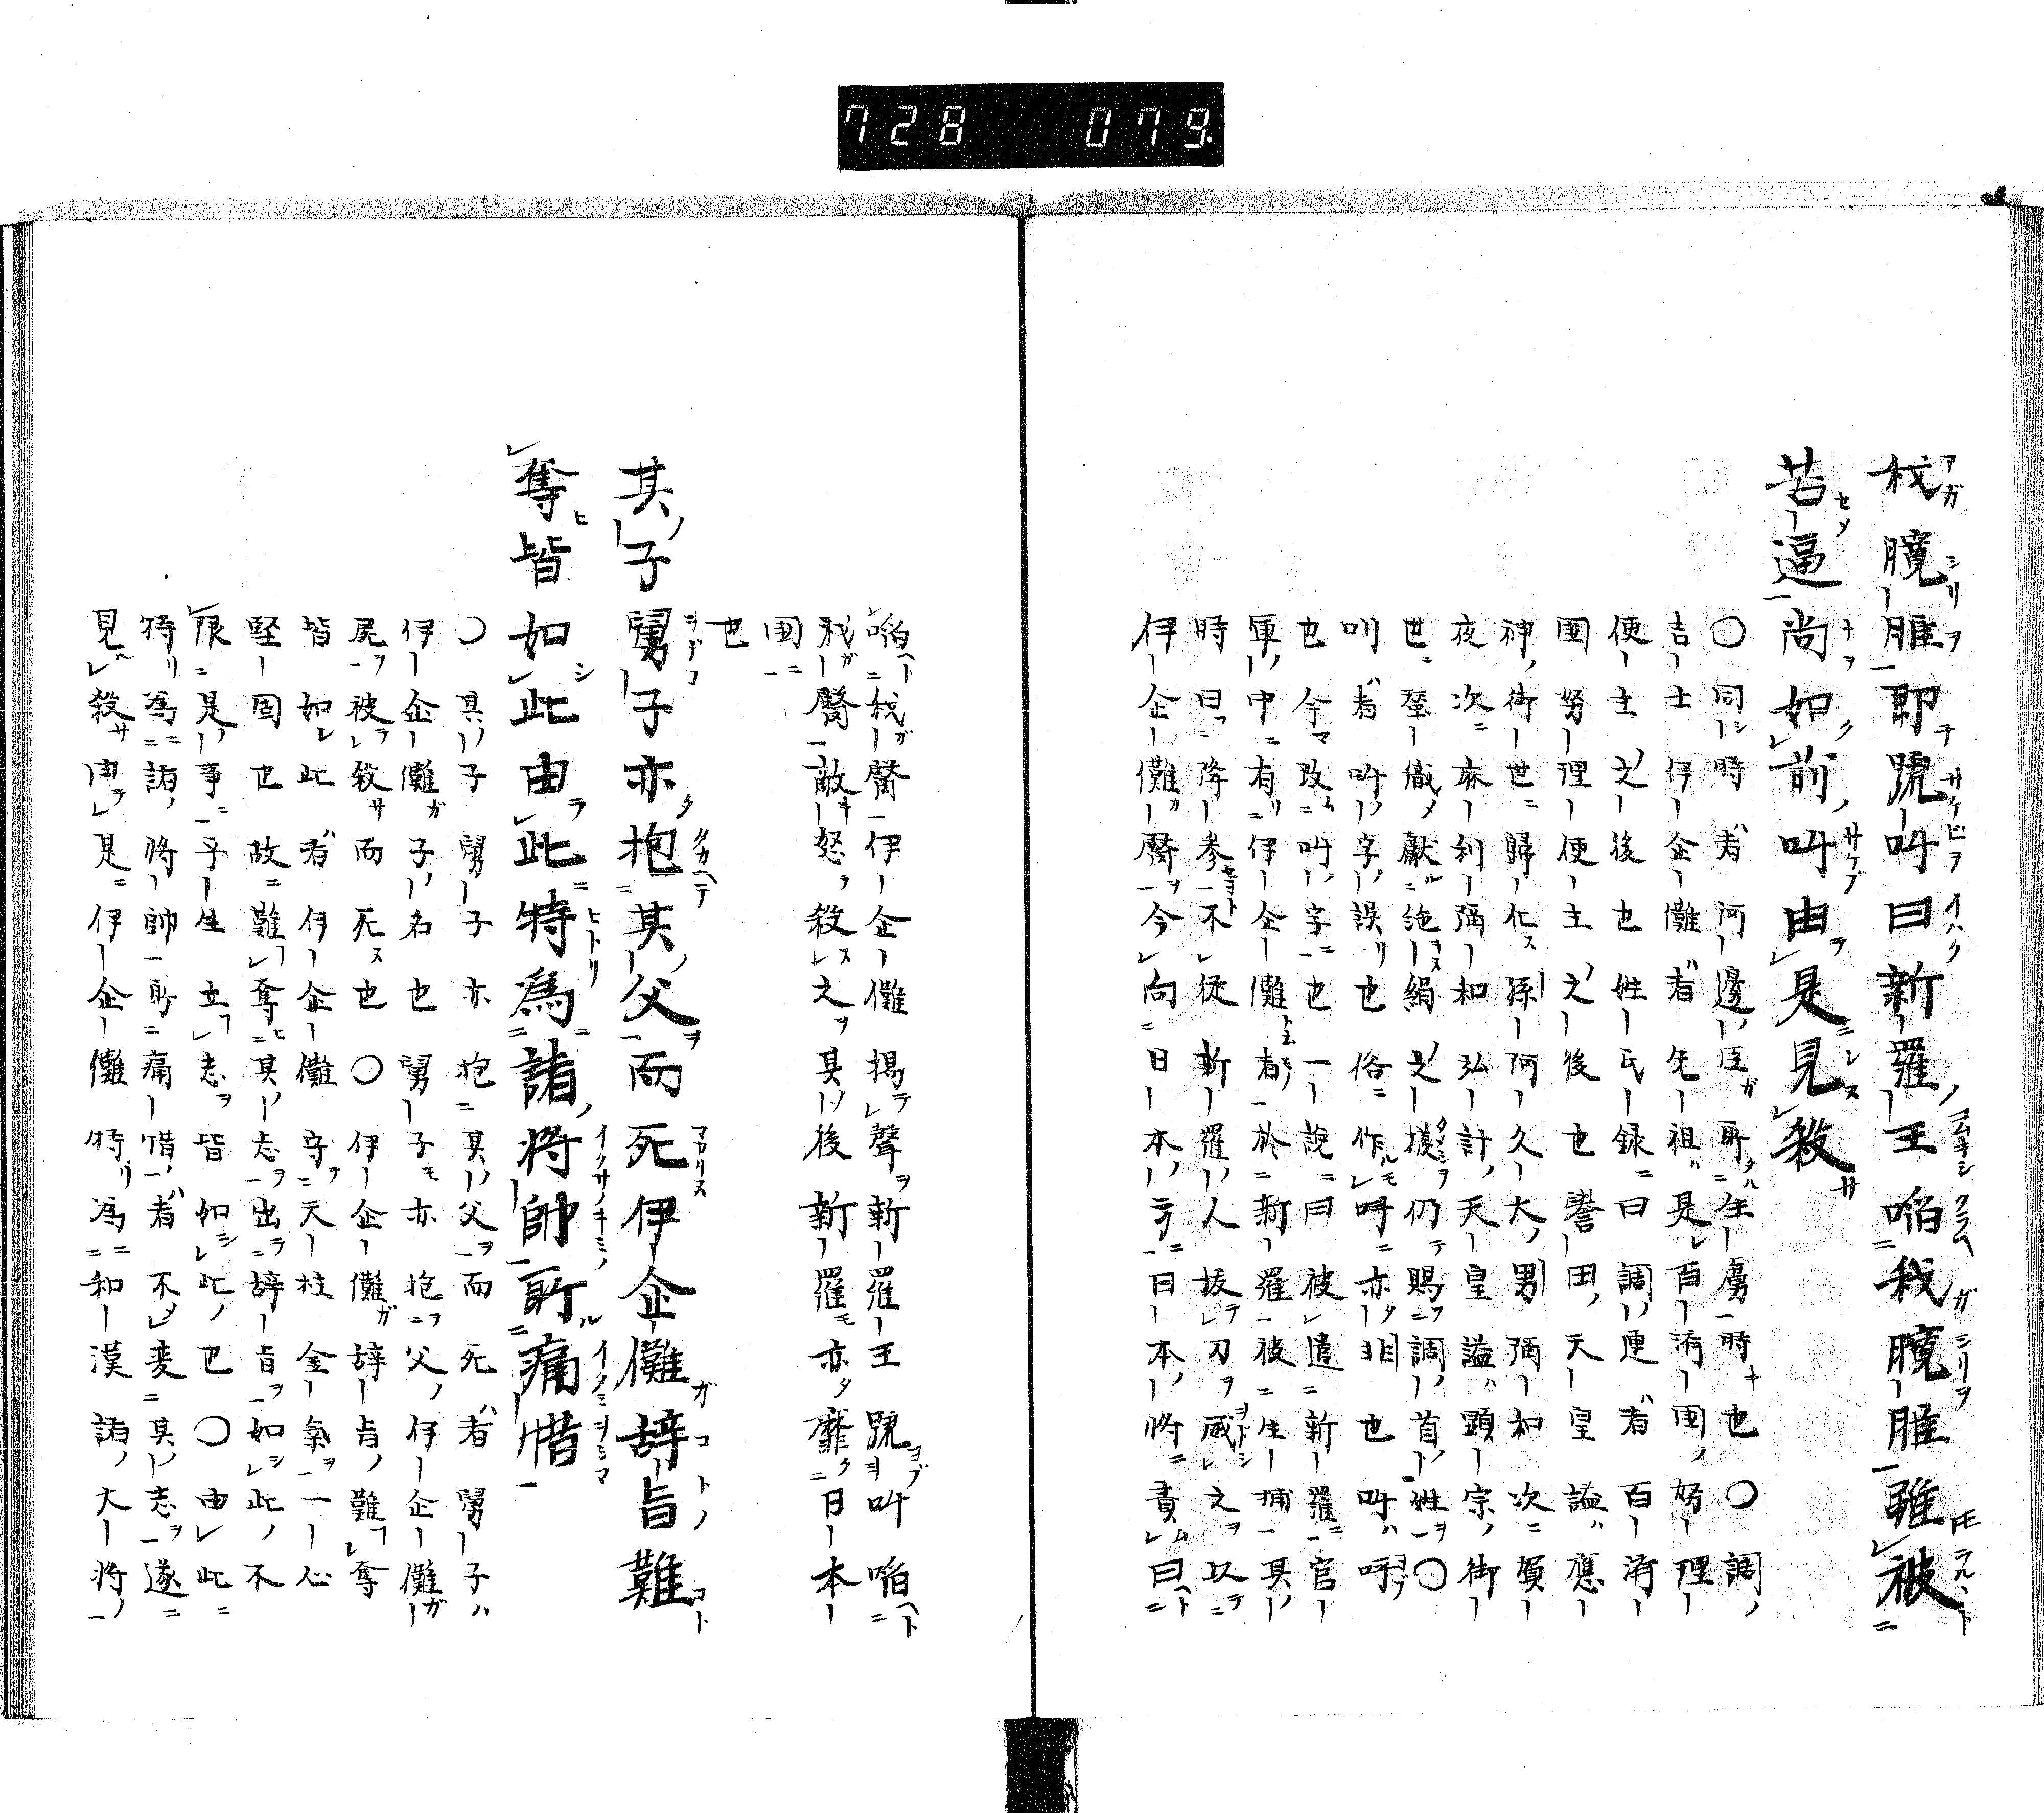 728 079
我臗脽即號叫曰新羅王啗我臗脽雖被
苦逼尚如前叫由是見殺
〇同時者河邊臣所生虜時也〇調
吉士伊企儺者先祖是百済国努理
使主之後也姓氏録曰調連者百済
国努理使主之後也誉田天皇謚應
神御世歸化孫阿久太男弥和次賀
夜次麻利弥和弘計天皇謚顕宗御
世蚕織獻絁絹之様仍賜調首姓〇
叫者叫字誤也俗作呌亦非也叫呼
也今改叫字也一説曰被遣新羅官
軍中有伊企儺者於新羅被生捕其
時曰降参不従新羅人抜刀威之以
伊企儺臀今向日本方日本将責曰
啗我臀伊企儺揚聲新羅王號叫啗
我臀敵怒殺之其後新羅亦靡日本
国
也
其子舅子亦抱其父而死伊企儺辞旨難
奪皆如此由此特為諸将帥所痛惜
〇其子舅子亦抱其父而死者舅子
伊企儺子名也舅子亦抱父伊企儺
屍被殺而死也〇伊企儺辞旨難奪
皆如此者伊企儺守天柱金氣一心
堅固也故難奪其志出辞旨如此不
限是事平生立志皆如此也〇由此
特為諸将帥所痛惜者不変其志遂
見殺由是伊企儺特為和漢諸大将